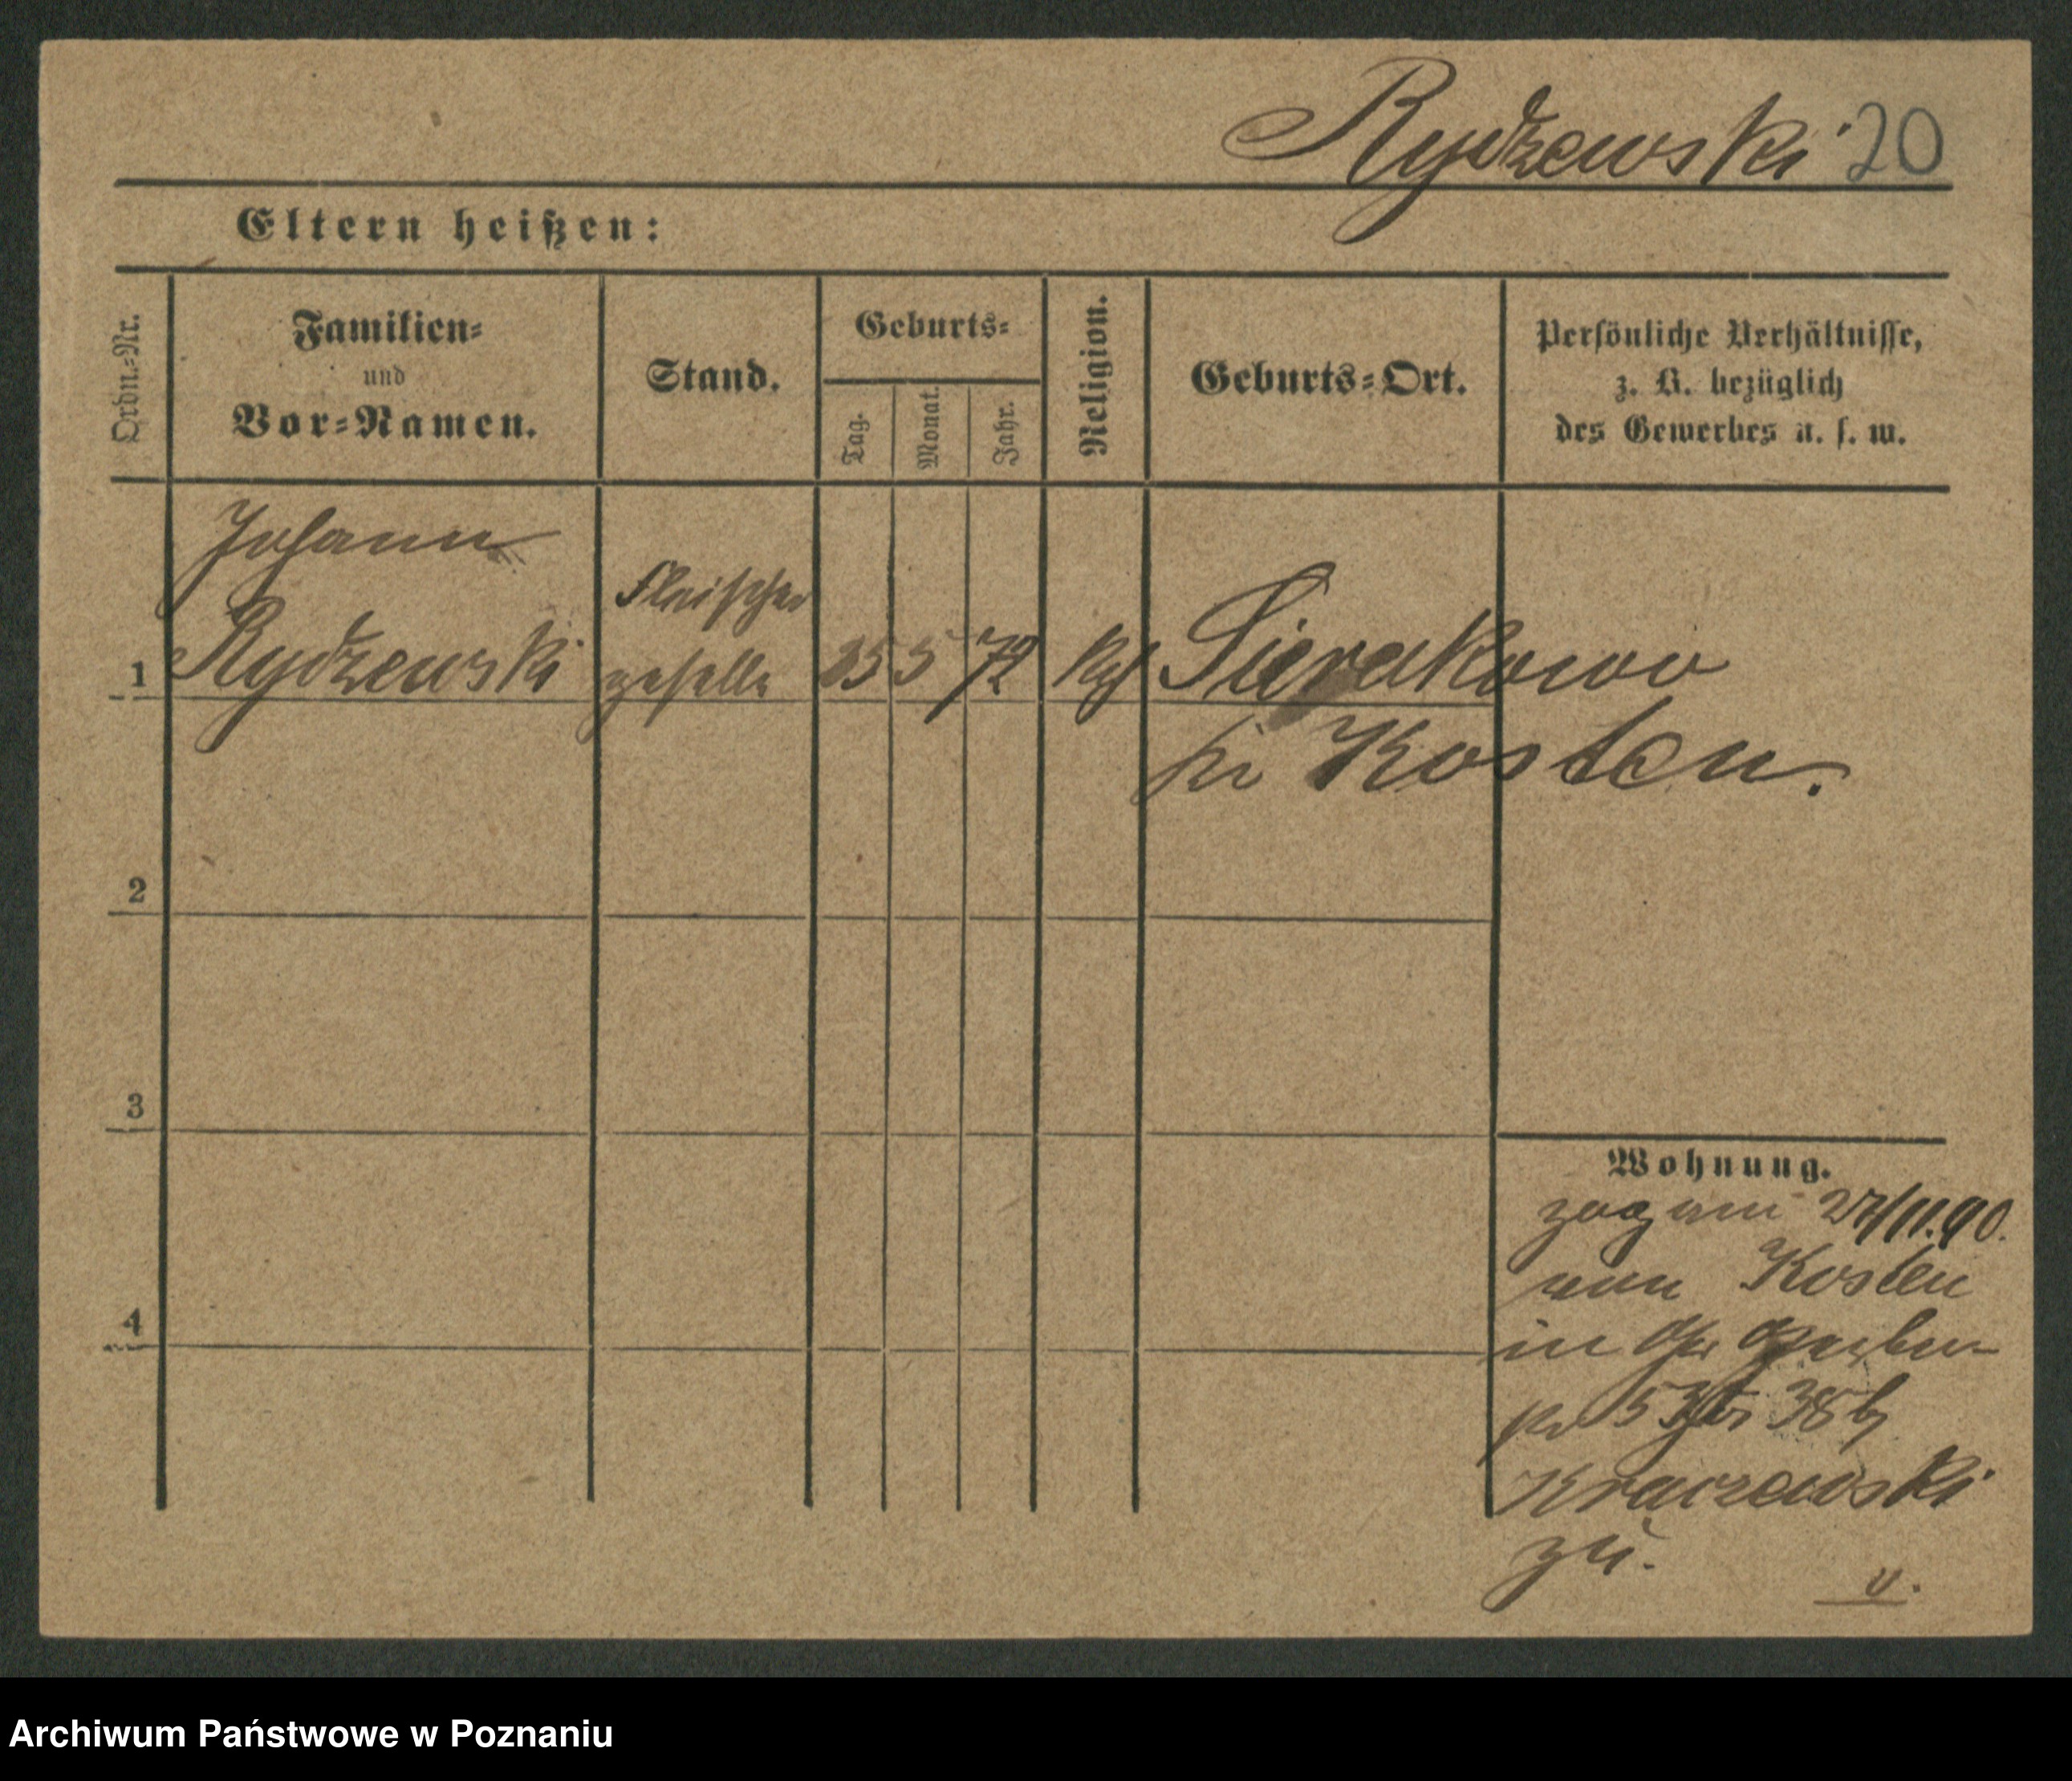 Rydzewski 20
Eltern heißen:
Ordn.=Nr.
Familien=
und
Vor=Namen.
Stand.
Geburts=
Tag.
Monat.
Jahr.
Religion.
Geburts=Ort.
Persönliche Verhältnisse,
z. B. bezüglich
des Gewerbes u. s. w.
Johann
Fleischer
1 Rydzewski geselle 5 72 Sierakowo
Kosten.
2
3
4
Wohnung.
zog am 27/11.90.
von Kosten
in
38
Kraczewski
zu.
v.
Archiwum Państwowe w Poznaniu